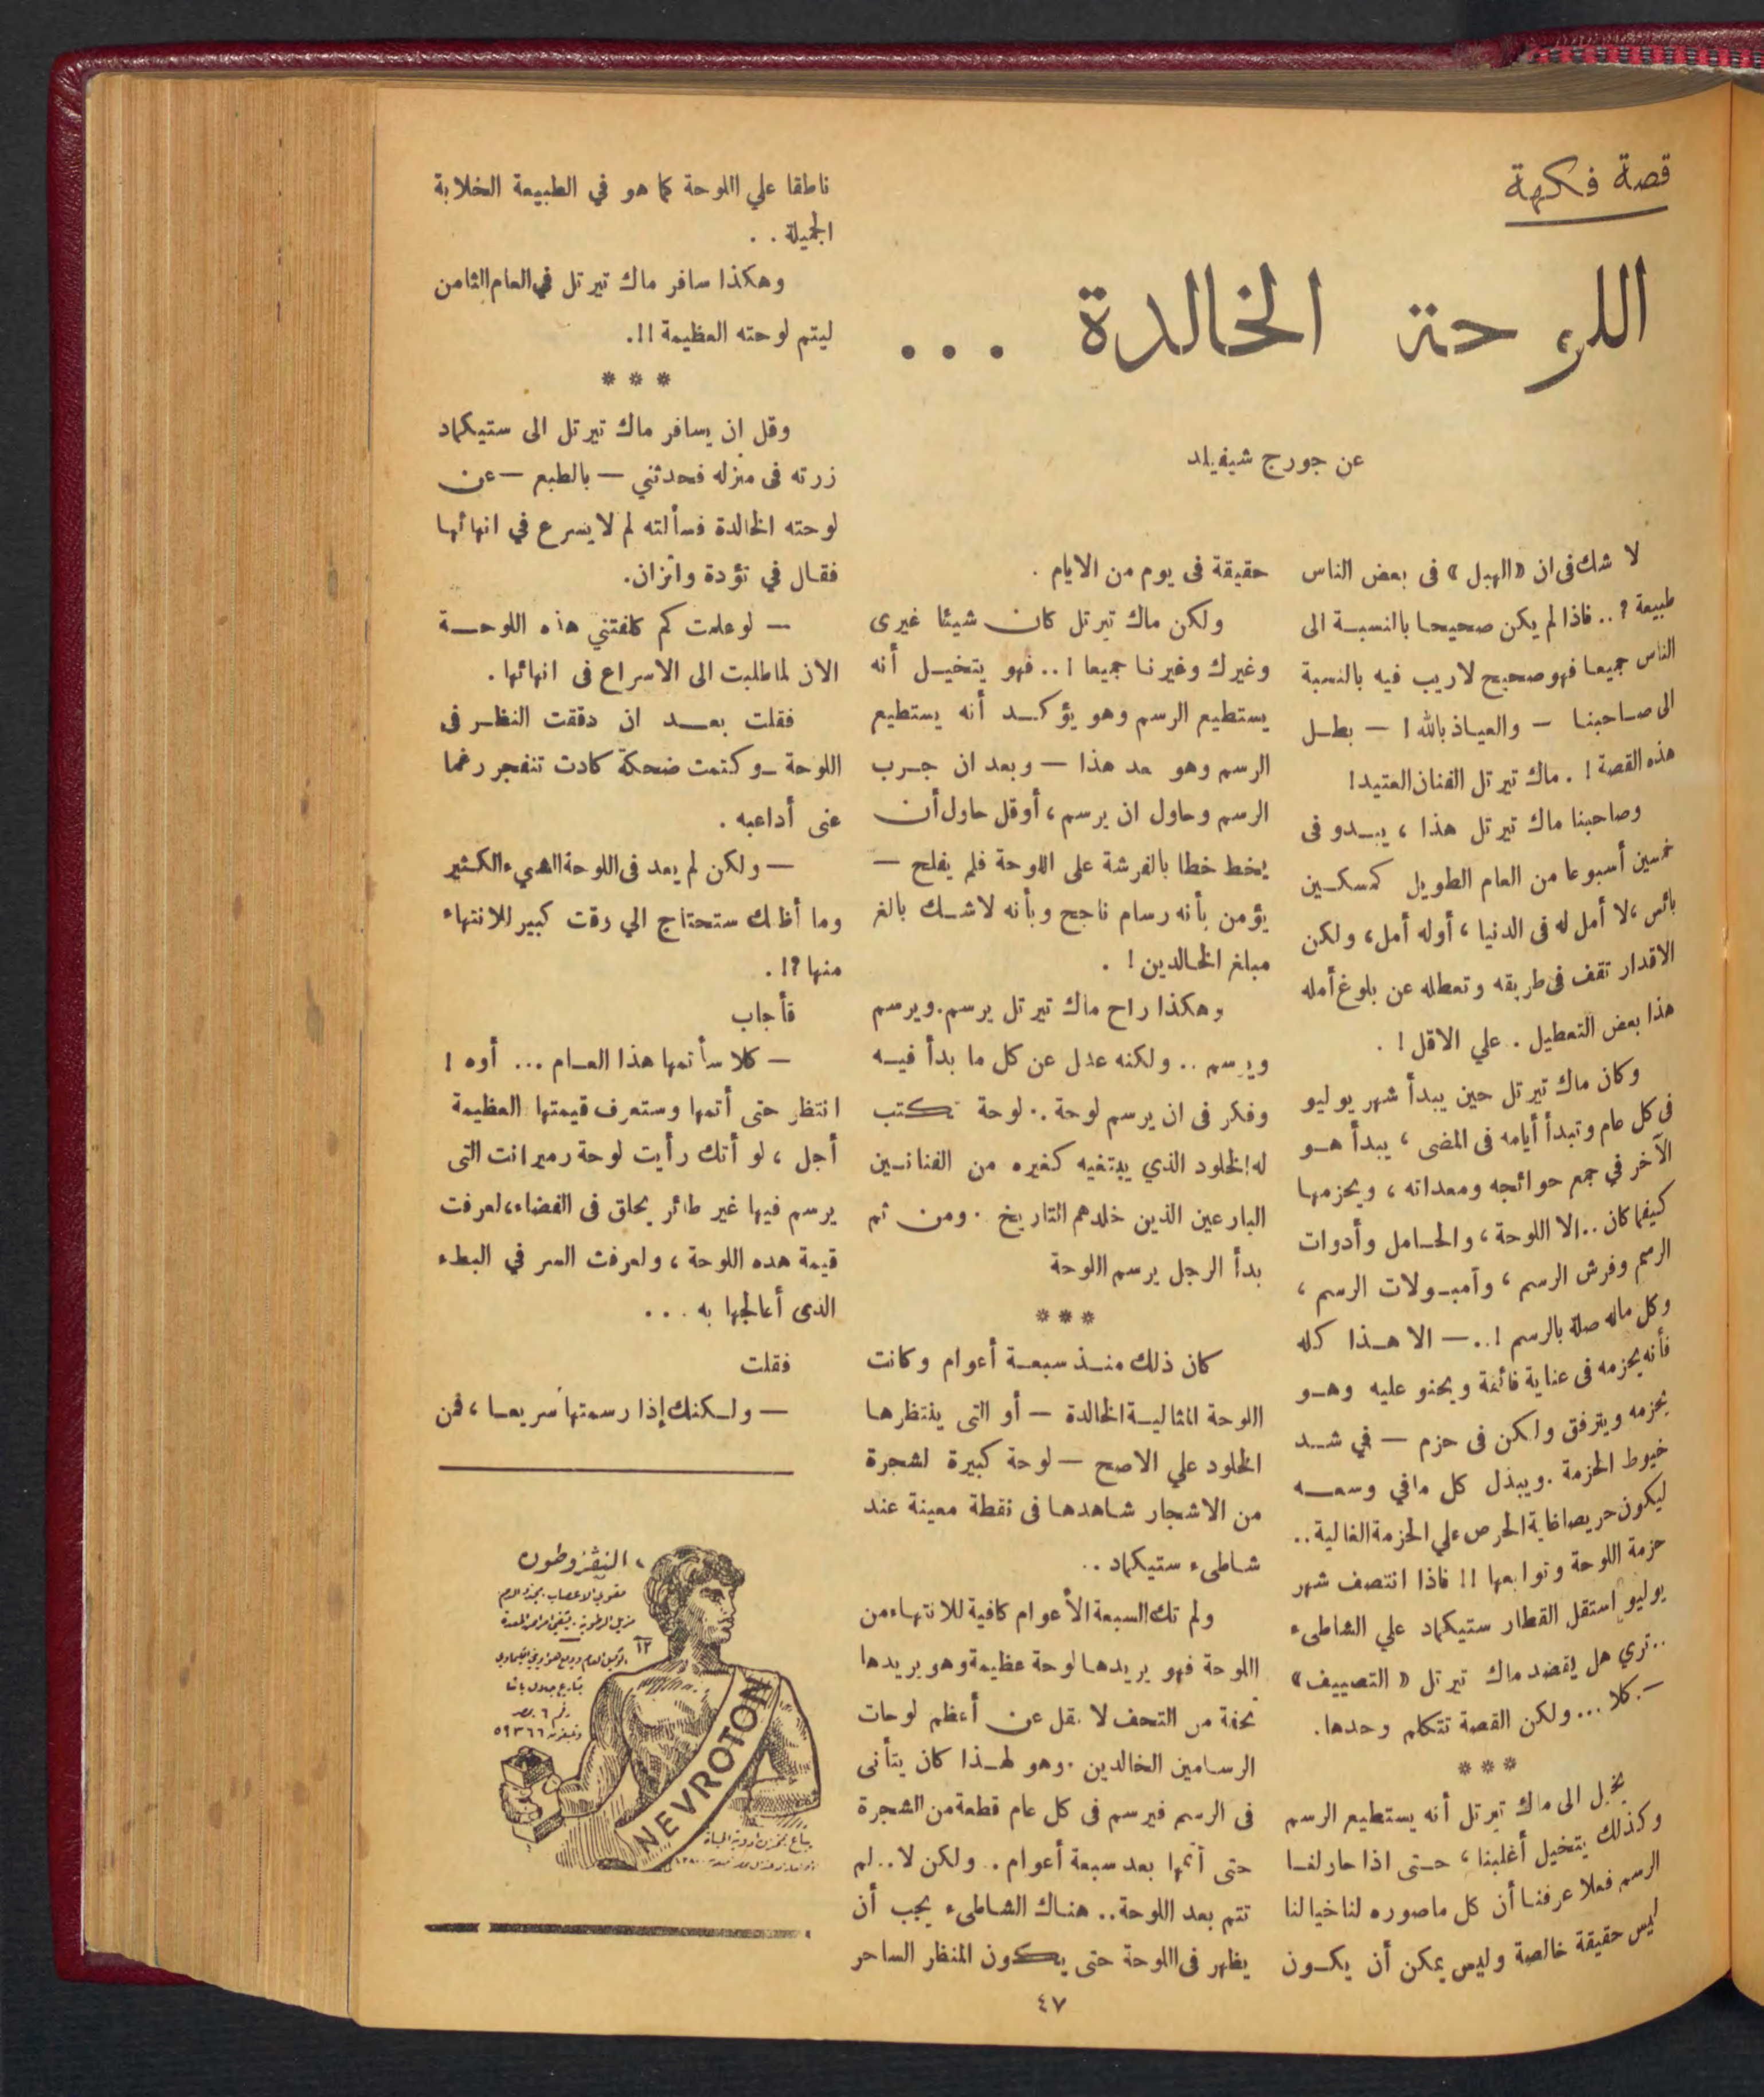 قصة فكهة
اللوحة الخالدة ...
عن جورج شيفيلد
لا شك فى ان «الهبل» فى بعض الناس
طبيعة ؟ .. فاذا لم يكن صحيحا بالنسبة الى
الناس جميعا فهو صحيح لاريب فيه بالنسبة
الى صاحبنا — والعياذ بالله ! — بطل
هذه القصة ! . ماك تيرتل الفنان العتيد !
وصاحبنا ماك تيرتل هذا ، يبدو فى
خمسين أسبوعا من العام الطويل كمسكين
بائس ، لا أمل له فى الدنيا ، أوله أمل ، ولكن
الاقدار تقف فى طريقه وتعطله عن بلوغ أمله
هذا بعض التعطيل . علي الاقل ! .
وكان ماك تيرتل حين يبدأ شهر يوليو
فى كل عام وتبدأ أيامه فى المضى ، يبدأ هو
الآخر في جمع حوائجه ومعداته ، ويحزمها
كيفما كان .. الا اللوحة ، والحامل وأدوات
الرسم وفرش الرسم ، وآمبولات الرسم ،
وكل ماله صلة بالرسم ! .. — الا هذا كله
فأنه يحزمه فى عناية فائقة ويحنو عليه وهو
يحزمه ويترفق ولكن فى حزم — في شد
خيوط الحزمة . ويبذل كل مافي وسعه
ليكون حريصا غاية الحرص علي الحزمة الغالية ..
حزمة اللوحة وتوابعها !! فاذا انتصف شهر
يوليو استقل القطار ستيكماد علي الشاطىء
.. تري هل يقضد ماك تيرتل « التصييف »
— . كلا ... ولكن القصة تتكلم وحدها .
* * *
يخيل الى ماك تيرتل أنه يستطيع الرسم
وكذلك يتخيل أغلبنا ، حتى اذا حاولنا
الرسم فعلا عرفنا أن كل ماصوره لنا خيالنا
ليس حقيقة خالصة وليس يمكن أن يكون
حقيقة فى يوم من الايام .
ولكن ماك تيرتل كان شيئا غيرى
وغيرك وغيرنا جميعا ! .. فهو يتخيل أنه
يستطيع الرسم وهو يؤكد أنه يستطيع
الرسم وهو بعد هذا — وبعد ان جرب
الرسم وحاول ان يرسم ، أوقل حاول أن
يخط خطا بالفرشة على اللوحة فلم يفلح —
يؤمن بأنه رسام ناجح وبأنه لاشك بالغ
مبلغ الخالدين ! .
وهكذا راح ماك تيرتل يرسم . ويرسم
ويرسم .. ولكنه عدل عن كل ما بدأ فيه
وفكر فى ان يرسم لوحة .. لوحة تكتب
له الخلود الذي يبتغيه كغيره من الفنانين
البارعين الذين خلدهم التاريخ . ومن ثم
بدأ الرجل يرسم اللوحة
* * *
كان ذلك منذ سبعة أعوام وكانت
اللوحة المثالية الخالدة — أو التى ينتظرها
الخلود علي الاصح — لوحة كبيرة لشجرة
من الاشجار شاهدها فى نقطة معينة عند
شاطىء ستيكماد ..
ولم تك السبعة الأعوام كافية للانتهاء من
اللوحة فهو يريدها لوحة عظيمة وهو يريدها
تحفة من التحف لا يقل عن أعظم لوحات
الرسامين الخالدين . وهو لهذا كان يتأنى
فى الرسم فيرسم فى كل عام قطعة من الشجرة
حتى أتمها بعد سبعة أعوام . ولكن لا .. لم
تتم بعد اللوحة .. هناك الشاطىء يجب أن
يظهر فى اللوحة حتى يكون المنظر الساحر
ناطقا علي اللوحة كما هو في الطبيعة الخلابة
الجميلة . .
وهكذا سافر ماك تيرتل في العام الثامن
ليتم لوحته العظيمة !! .
* * *
وقل ان يسافر ماك تيرتل الى ستيكماد
زرته فى منزله فحدثني — بالطبع — عن
لوحته الخالدة فسألته لم لا يسرع في انهائها
فقال في تؤدة واتزان .
— لو علمت كم كلفتني هذه اللوحة
الان لما طلبت الى الاسراع فى انهائها .
فقلت بعد ان دققت النظر فى
اللوحة — وكتمت ضحكة كادت تنفجر رغما
عنى أداعبه .
— ولكن لم يعد فى اللوحة الشيء الكثير
وما أظنك ستحتاج الي وقت كبير للانتهاء
منها ؟! .
فأجاب
— كلا سأتمها هذا العام ... أوه !
انتظر حتى أتمها وستعرف قيمتها العظيمة
أجل ، لو أنك رأيت لوحة رمبرانت التى
يرسم فيها غير طائر يحلق فى الفضاء ، لعرفت
قيمة هده اللوحة ، ولعرفت السر في البطء
الذى أعالجها به . . .
فقلت
— ولكنك إذا رسمتها سريعا ، فمن
النيڤروطون
مقوى الاعصاب . يجدد الدم
مزيل الرطوبة . يشفى امراض المعدة
٥٩٣٦٦
NEVROTON
٤٧